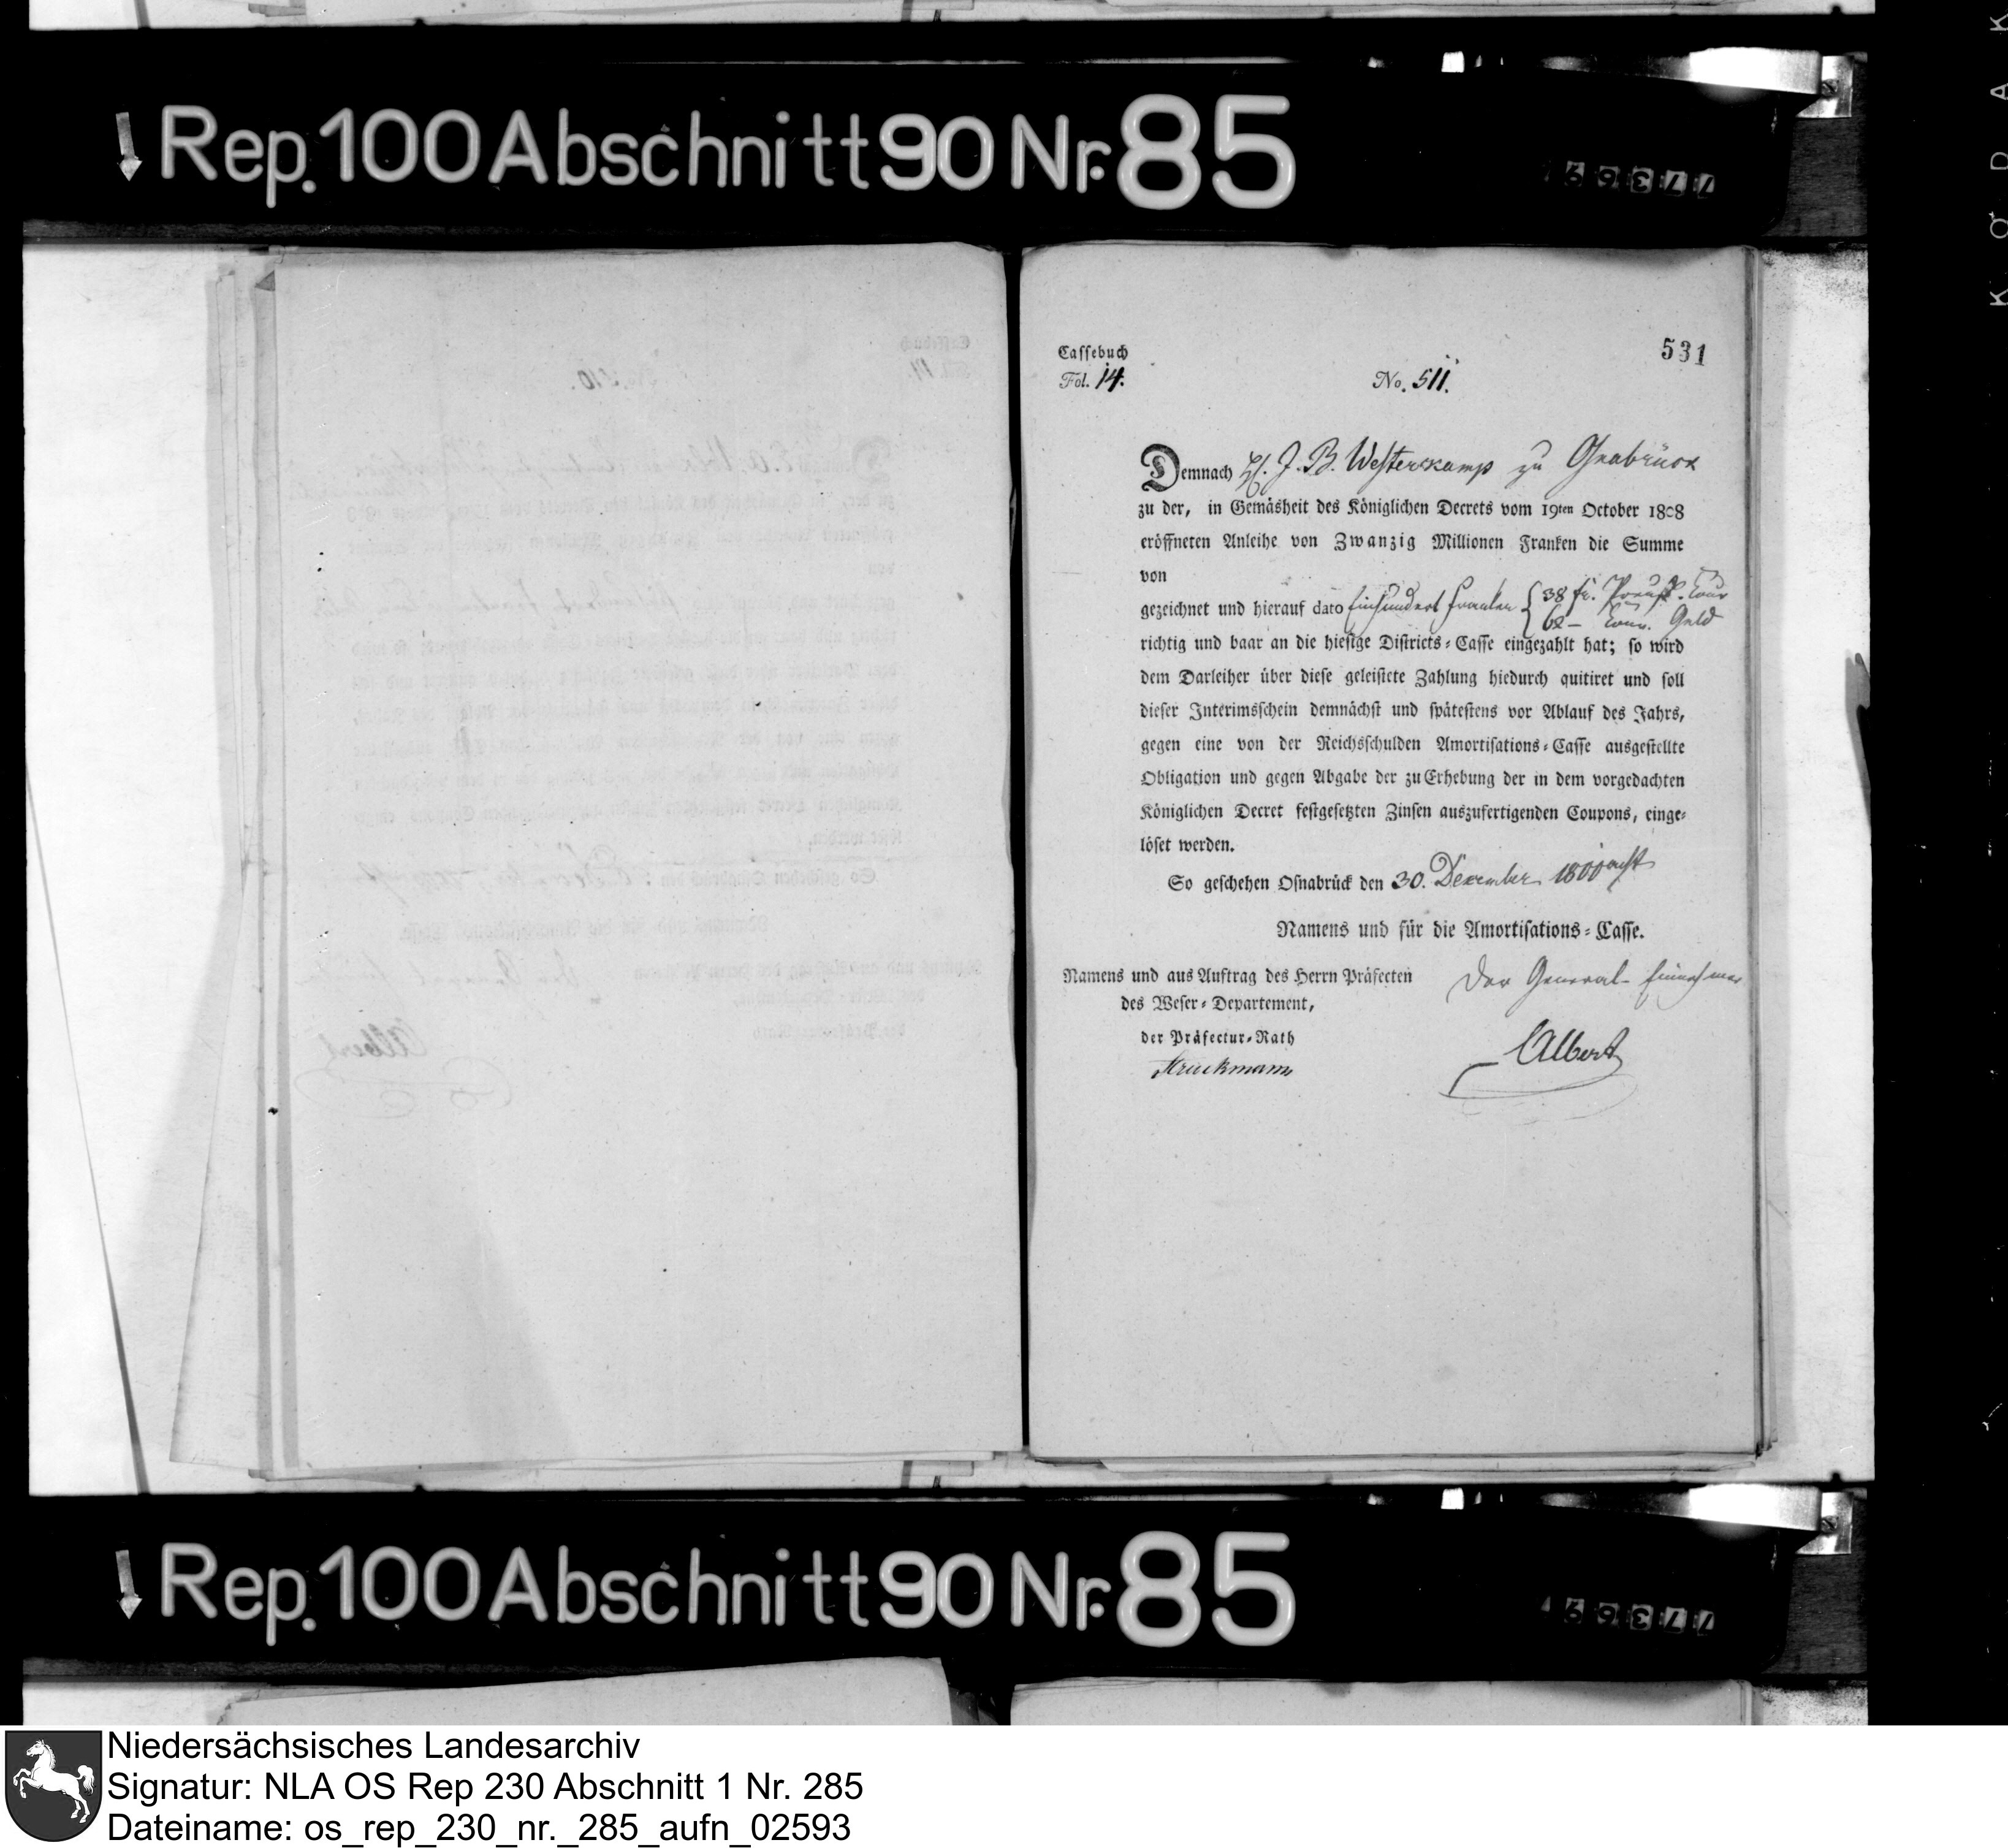 Rep.100 Abschnitt 90 Nr. 85
77369
KODAK
Cassebuch
Fol. 14.
No. 511.
531
Demnach H. J. B. Westerkamp zu Osnabrück
zu der, in Gemäsheit des Königlichen Decrets vom 19ten October 1808
eröffneten Anleihe von Zwanzig Millionen Franken die Summe
von
gezeichnet und hierauf dato Einhundert Franken { 38 fr. Preuß. Cour
62 — Conv. Geld
richtig und baar an die hiesige Districts-Casse eingezahlt hat; so wird
dem Darleiher über diese geleistete Zahlung hiedurch quitiret und soll
dieser Interimsschein demnächst und spätestens vor Ablauf des Jahrs,
gegen eine von der Reichsschulden Amortisations-Casse ausgestellte
Obligation und gegen Abgabe der zu Erhebung der in dem vorgedachten
Königlichen Decret festgesetzten Zinsen auszufertigenden Coupons, einge-
löset werden.
So geschehen Osnabrück den 30. December 1800 acht
Namens und für die Amortisations-Casse.
Namens und aus Auftrag des Herrn Präfecten
des Weser-Departement,
der Präfectur-Rath
Struckmann
Der General-Einnehmer
Albert
Rep.100 Abschnitt 90 Nr. 85
77369
Niedersächsisches Landesarchiv
Signatur: NLA OS Rep 230 Abschnitt 1 Nr. 285
Dateiname: os_rep_230_nr._285_aufn_02593